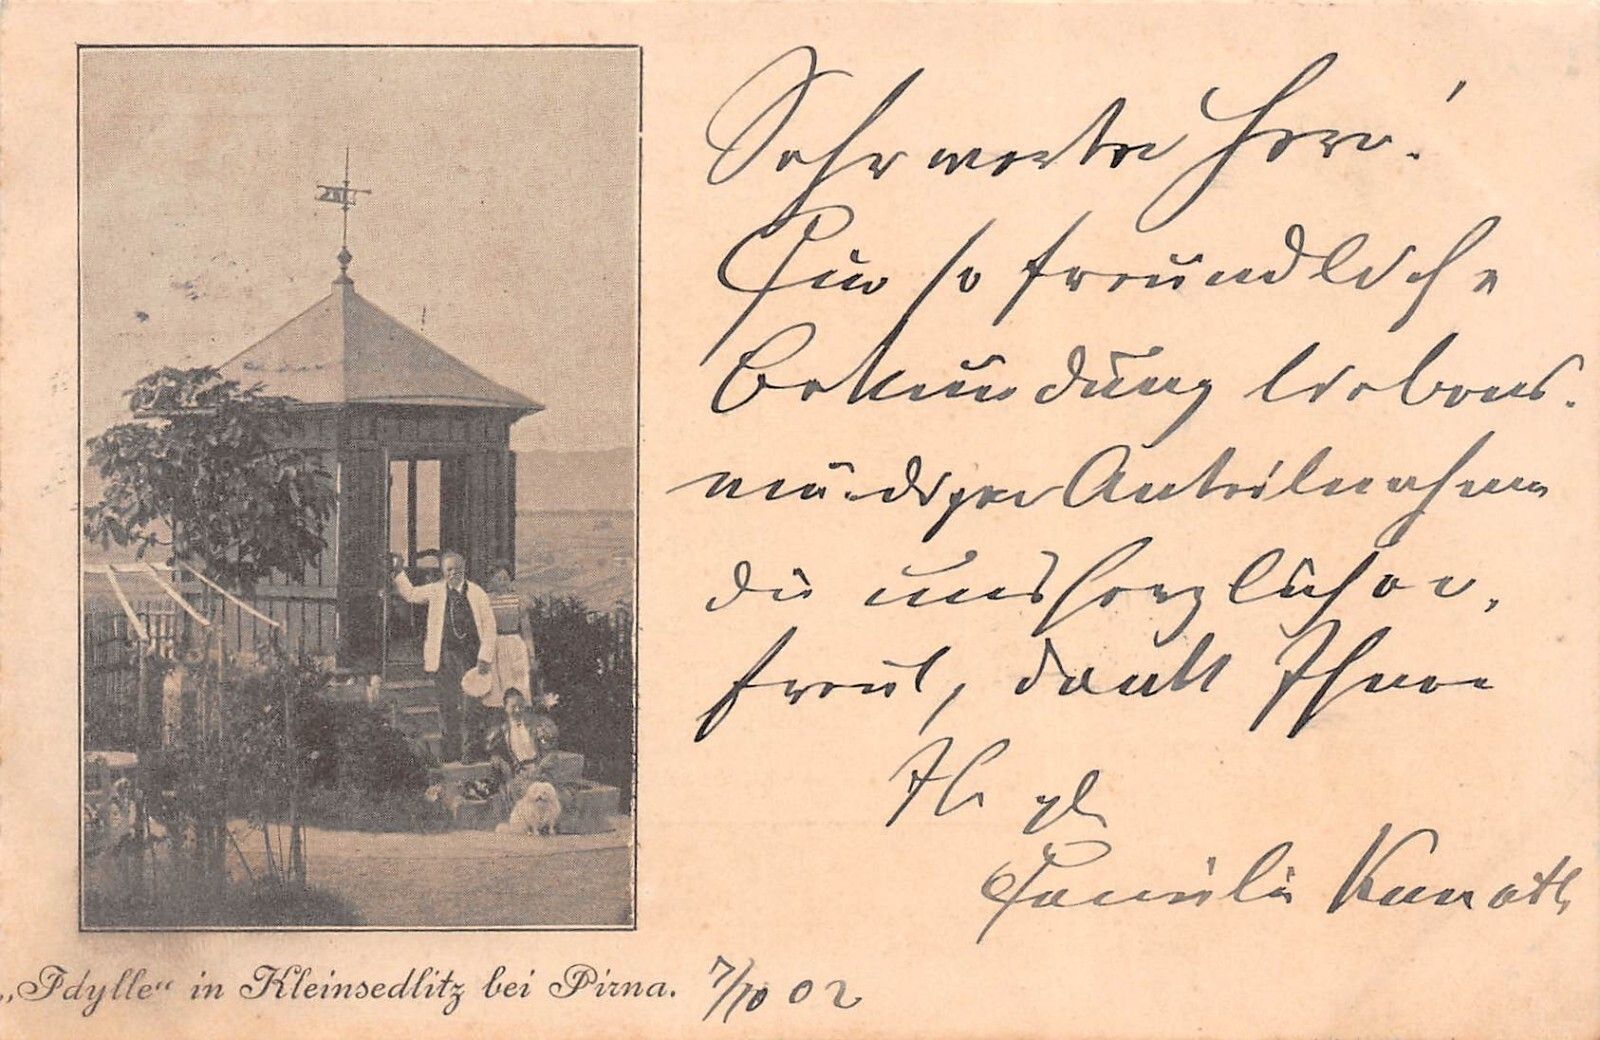 Sehr werter Herr!
Für so freundliche
Bekundung liebens-
würdiger Anteilnahme
die uns herzlich er-
freut, dankt Ihnen
Familie
„Idylle“ in Kleinsedlitz bei Pirna.
7/10 02